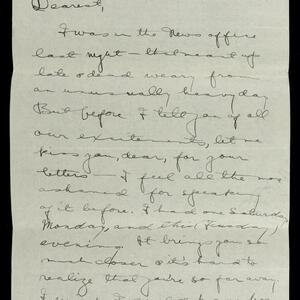 Dearest,
I was in the News office
last night — that meant up
late & dead weary from
an unusually heavy day
But before I tell you of all
our excitements, let me
kiss you, dear, for your
letters — I feel all the more
ashamed for speaking
of it before. I had one Saturday,
Monday, and this, Tuesday,
evening. It brings you so
much closer it's hard to
realize that you're so far away.